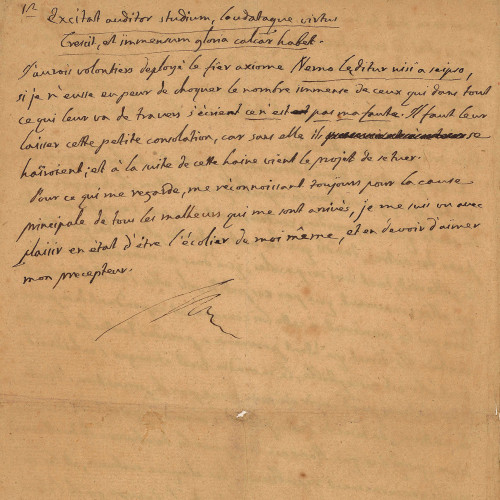 Excitat auditor studium, laudataque virtus
Crescit, et immensum gloria calcar habet.
J'aurois volontiers deployé le fier axiome Nemo leditur nisi a seipso,
si je n'eusse eu peur de choquer le nombre immense de ceux qui dans tout
ce qui leur va de travers s'écrient ce n'est pas ma faute. Il faut leur
laisser cette petite consolation, car sans elle ils se
haïroient; et à la suite de cette haine vient le projet de se tuer.
Pour ce qui me regarde, me reconnoissant toujours pour la cause
principale de tous les malheurs qui me sont arrivés, je me suis vu avec
plaisir en état d'être l'écolier de moi même, et en devoir d'aimer
mon precepteur.